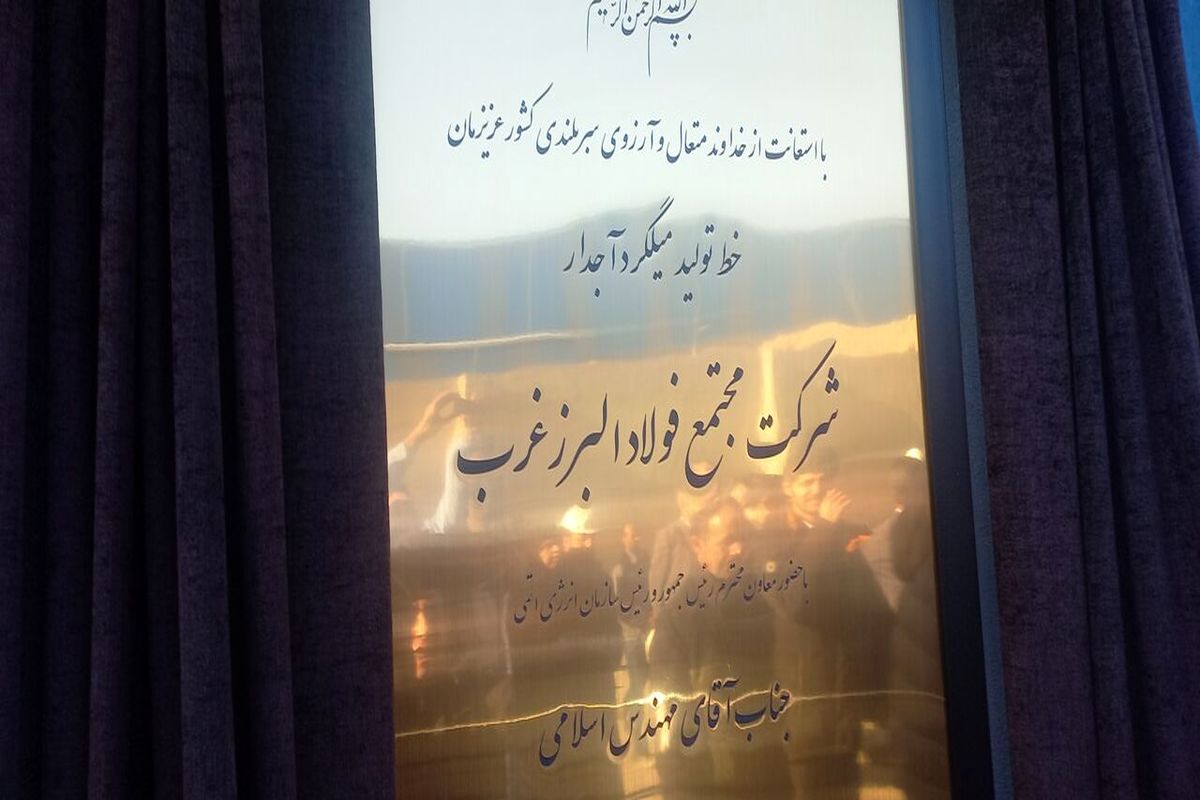 بسم الله الرحمن الرحیم
با استعانت از خداوند متعال و آرزوی سربلندی کشور عزیزمان
خط تولید میلگرد آجدار
شرکت مجتمع فولاد البرز غرب
با حضور معاون محترم رئیس جمهور و رئیس سازمان انرژی اتمی
جناب آقای مهندس اسلامی